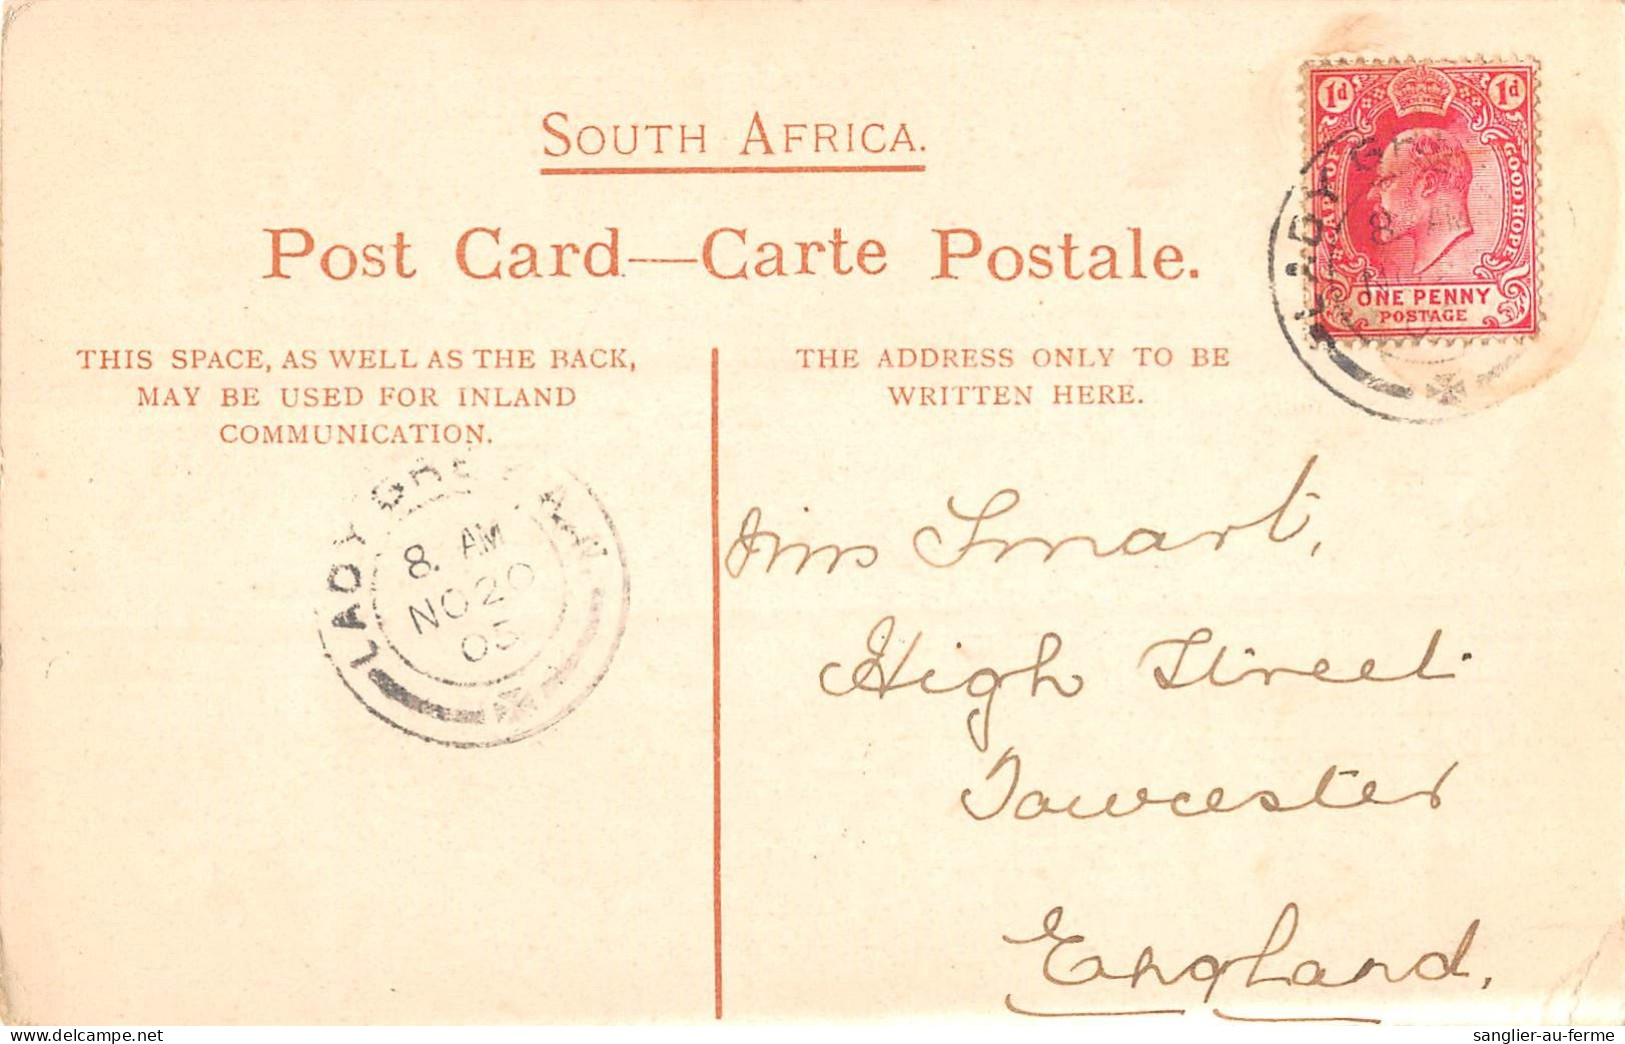 SOUTH AFRICA.
Post Card—Carte Postale.
THIS SPACE, AS WELL AS THE BACK,
MAY BE USED FOR INLAND
COMMUNICATION.
THE ADDRESS ONLY TO BE
WRITTEN HERE.
1d 1d
CAPE OF GOOD HOPE
ONE PENNY
POSTAGE
LADY
8 AM
LADY
8. AM
NO 20
05
Miss Smart,
High Street
Towcester
England,
sanglier-au-ferme